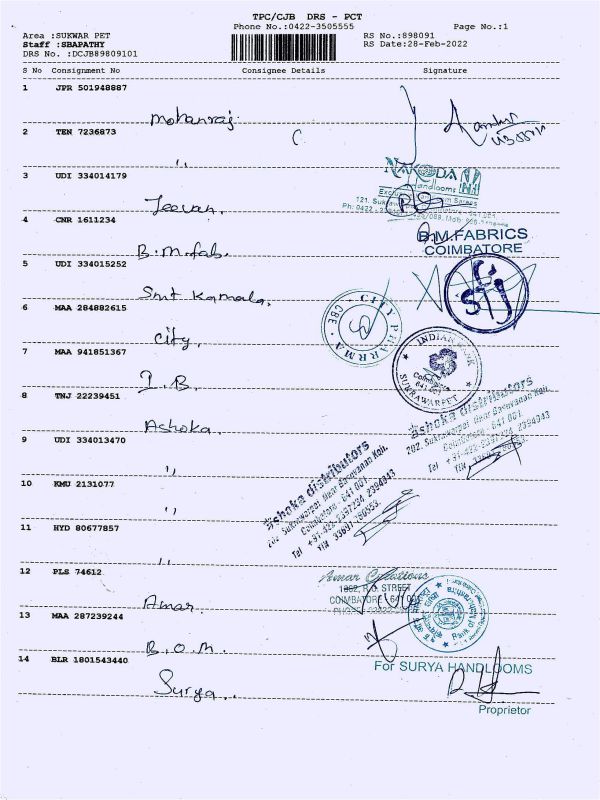 TPC/CJB DRS - PCT
Phone No.:0422-3505555 Page No.:1
Area :SUKWAR PET RS No.:898091
Staff :SBAPATHY RS Date:28-Feb-2022
DRS No. :DCJB89809101
S No Consignment No Consignee Details Signature
1 JPR 501948887
Mohanraj.
2 TEN 7236873
"
3 UDI 334014179
NAKODA
Handlooms
Jeevan.
4 CNR 1611234
B.M.FABRICS
COIMBATORE
B.M.fab.
5 UDI 334015252
Smt Kamala.
6 MAA 284882615
CITY PHARMA
CBE
City.
7 MAA 941851367
INDIAN BANK
Coimbatore
641 001
SUKRAWARPET
I.B.
8 TNJ 22239451
Ashoka distributors
202, Sukrawarpet, Near Saravanan Koil,
Coimbatore - 641 001.
Tel : +91-422-2397234, 2394943
Ashoka.
9 UDI 334013470
"
10 KMU 2131077
Ashoka distributors
202, Sukrawarpet, Near Saravanan Koil,
Coimbatore - 641 001.
Tel : +91-422-2397234, 2394943
"
11 HYD 80677857
"
12 PLS 74612
Amar Creations
COIMBATORE
Amar.
13 MAA 287239244
B.O.M.
14 BLR 1801543440
For SURYA HANDLOOMS
Surya..
Proprietor